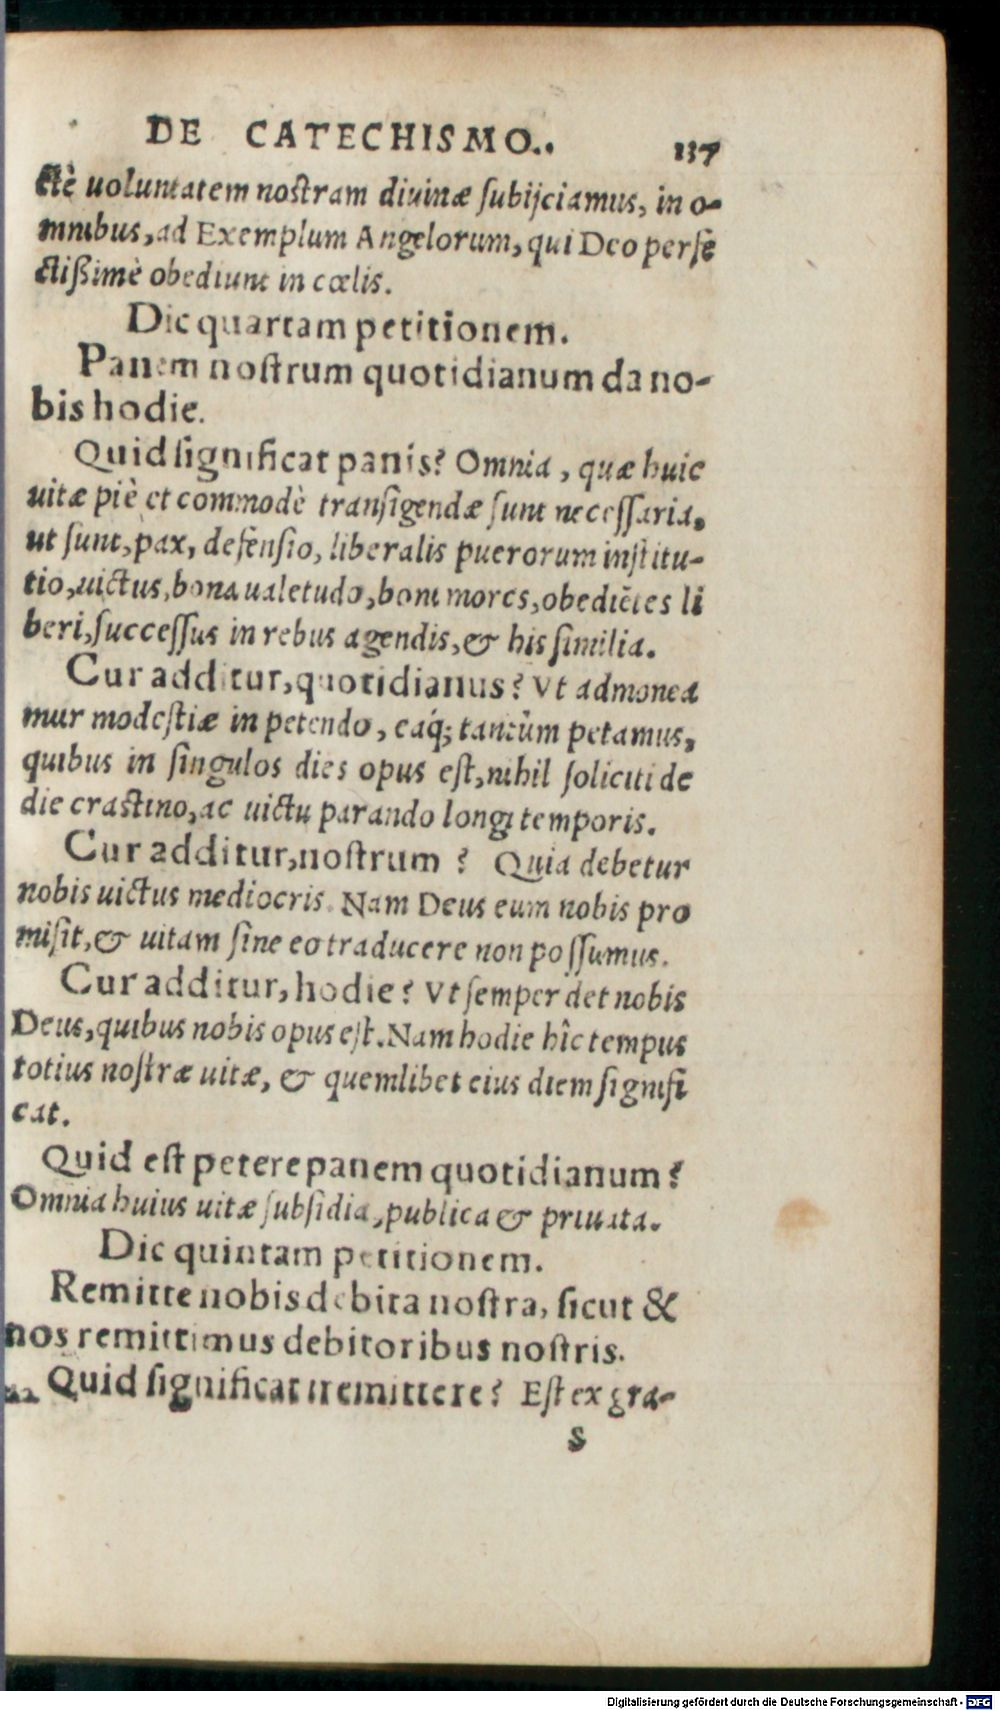 DE CATECHISMO.. 137
ctè uoluntatem nostram diuinæ subijciamus, in o-
mnibus, ad Exemplum Angelorum, qui Deo perfe
ctißimè obediunt in cœlis.
Dic quartam petitionem.
Panem nostrum quotidianum da no-
bis hodie.
Quid significat panis? Omnia, quæ huic
uitæ piè et commodè transigendæ sunt necessaria,
ut sunt, pax, defensio, liberalis puerorum institu-
tio, uictus, bona ualetudo, boni mores, obediẽtes li
beri, successus in rebus agendis, & his similia.
Cur additur, quotidianus? Vt admonea
mur modestiæ in petendo, eaq́; tantùm petamus,
quibus in singulos dies opus est, nihil soliciti de
die crastino, ac uictu parando longi temporis.
Cur additur, nostrum? Quia debetur
nobis uictus mediocris. Nam Deus eum nobis pro
misit, & uitam sine eo traducere non possumus.
Cur additur, hodie? Vt semper det nobis
Deus, quibus nobis opus est. Nam hodie hîc tempus
totius nostræ uitæ, & quemlibet eius diem signifi
cat.
Quid est petere panem quotidianum?
Omnia huius uitæ subsidia, publica & priuata.
Dic quintam petitionem.
Remitte nobis debita nostra, sicut &
nos remittimus debitoribus nostris.
Quid significat remittere? Est ex gra-
S
Digitalisierung gefördert durch die Deutsche Forschungsgemeinschaft - DFG